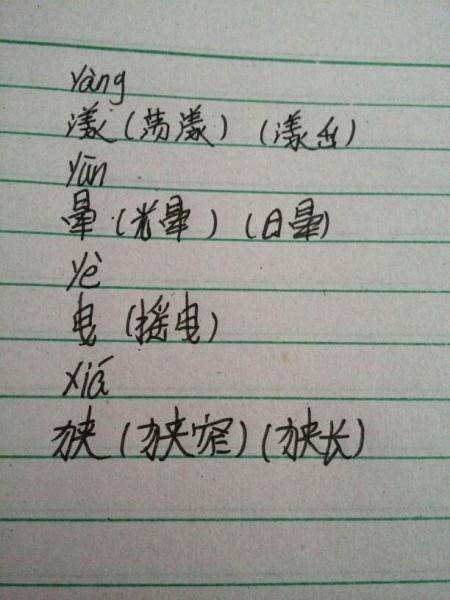 yàng
漾(荡漾)(漾出)
yūn
晕(光晕)(日晕)
yè
曳(摇曳)
xiá
狭(狭窄)(狭长)